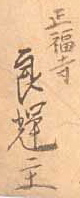 正福寺
良遅主